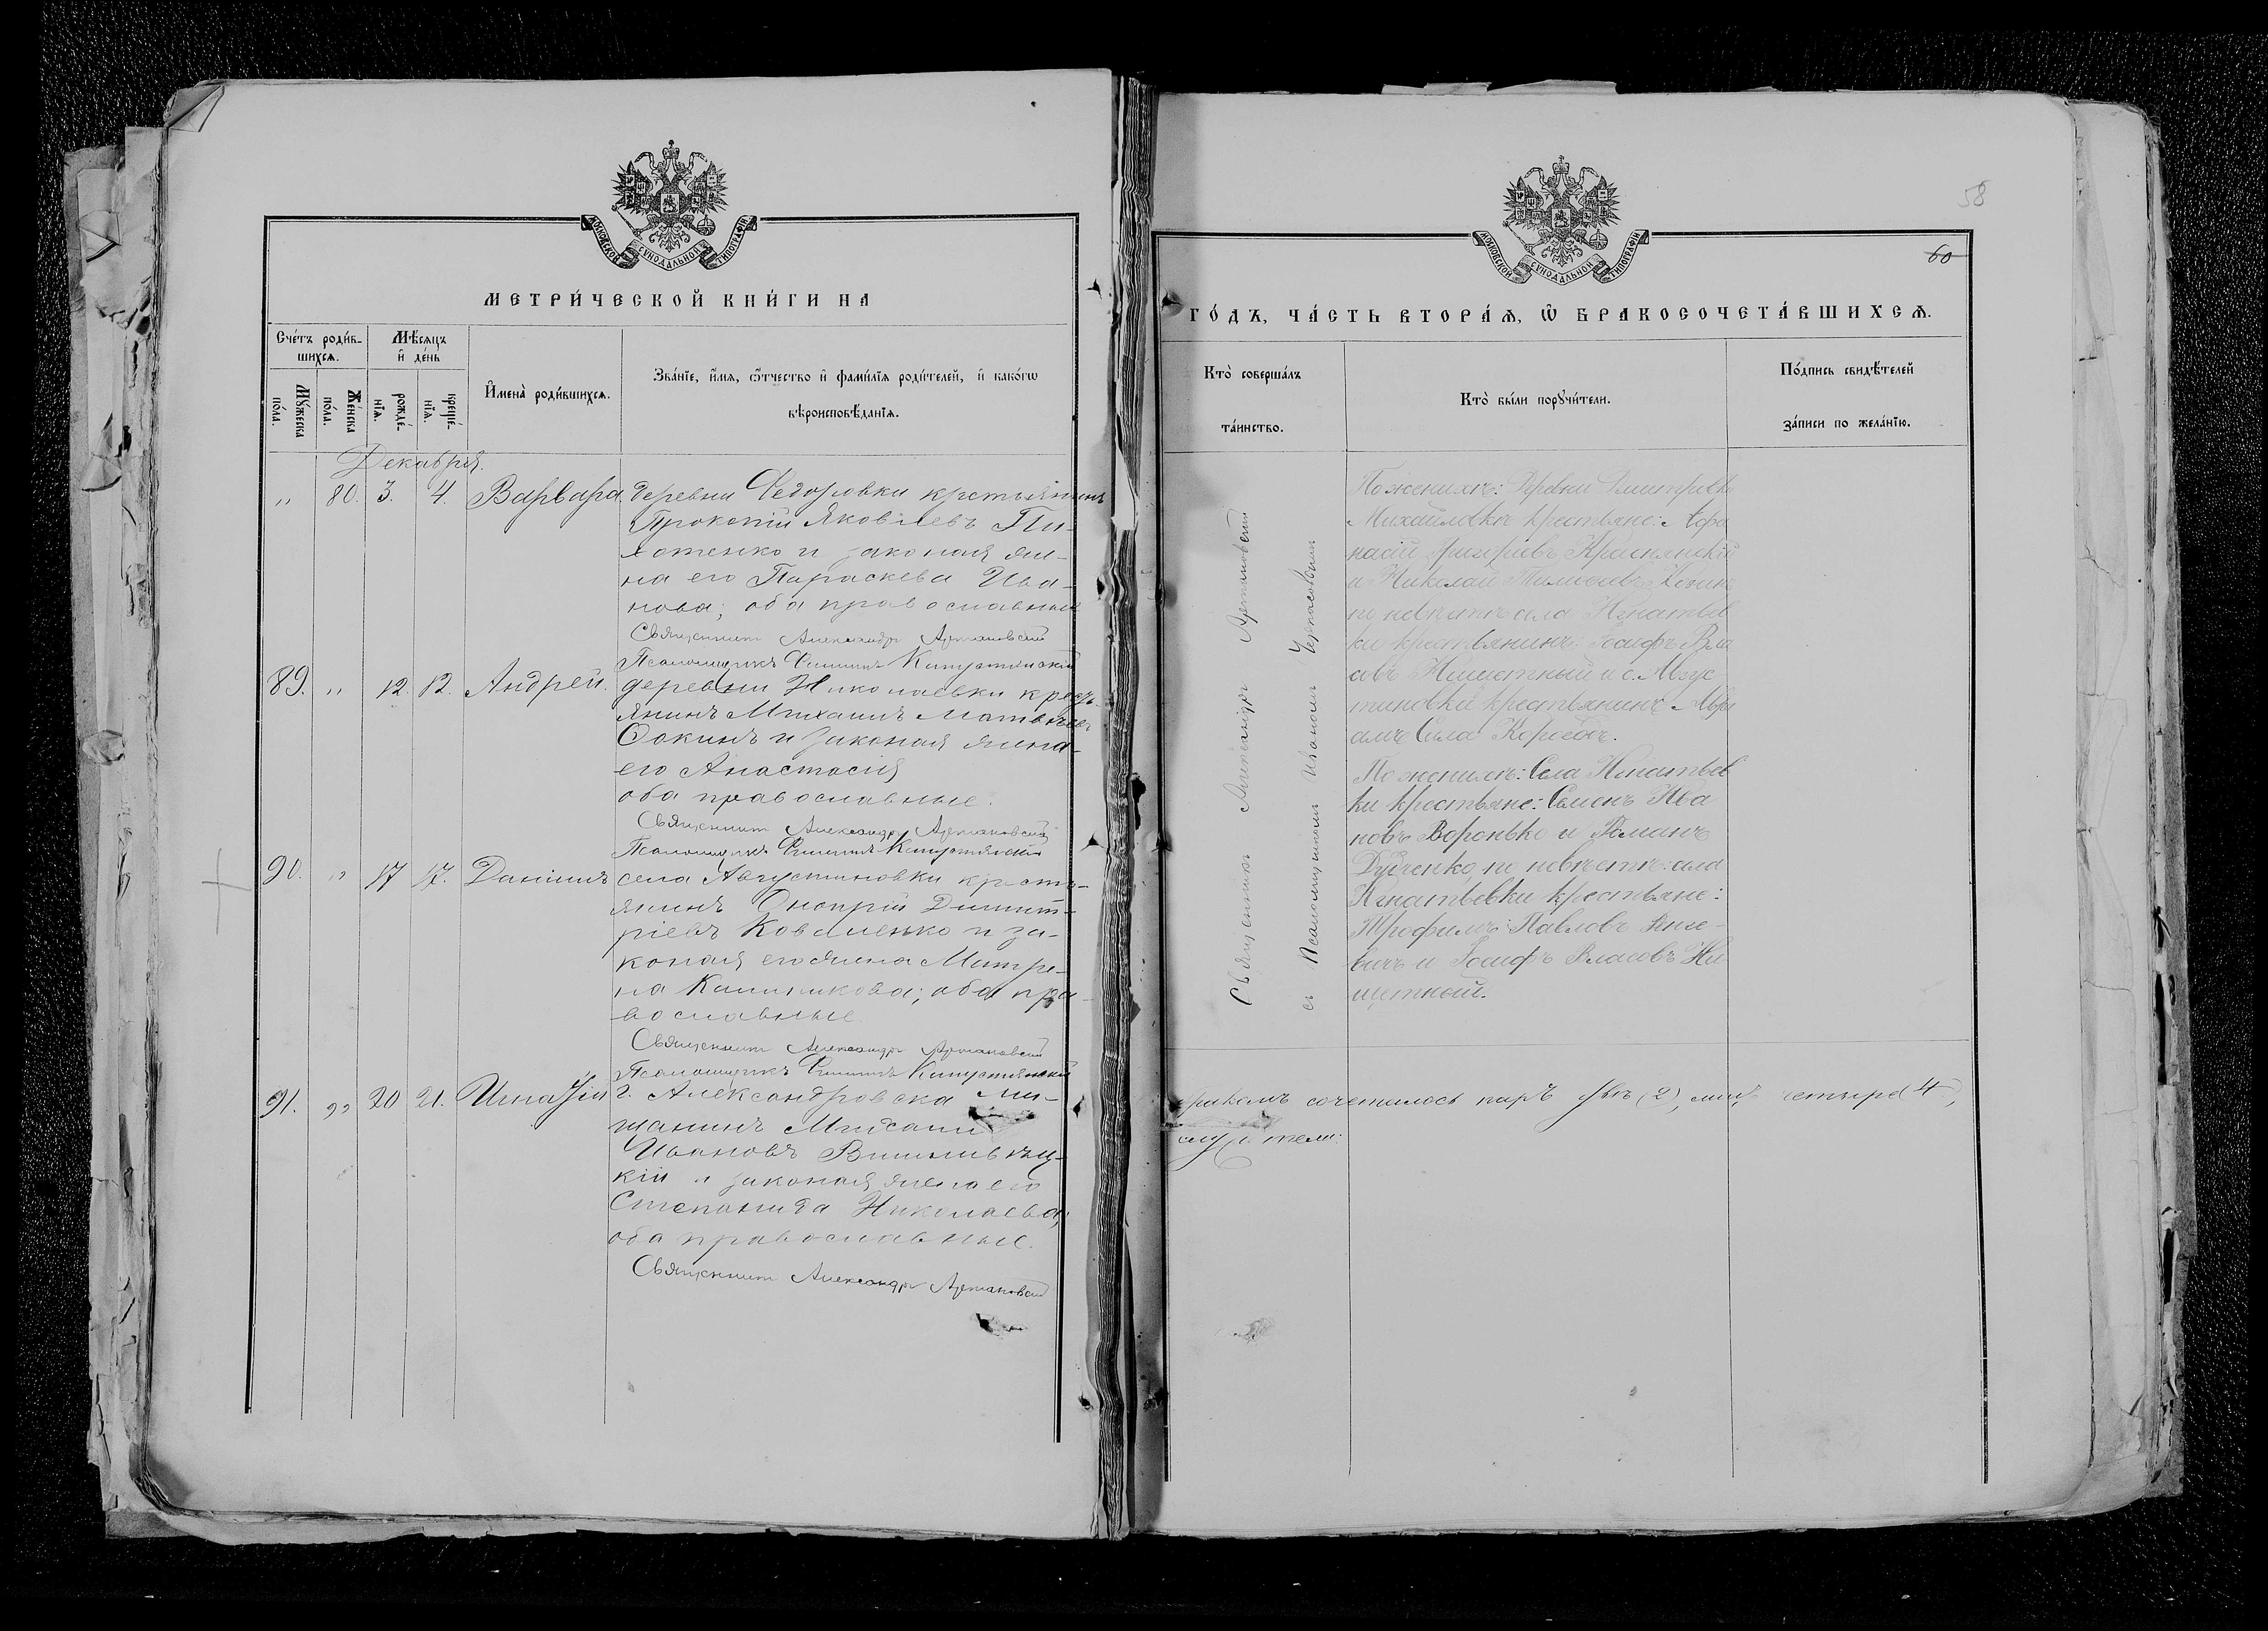 МОСКОВСКОЙ СУНОДАЛЬНОЙ ТИПОГРАФІИ
МЕТРИ́ЧЕСКОЙ КНИ́ГИ НА
Сче́тъ роди́в-
шихсѧ.
Мѣ́сяцъ
и҆ де́нь
Мꙋ́жеска
по́ла.
Же́нска
по́ла.
рожде́-
нїѧ.
креще́-
нїѧ.
И҆мена̀ роди́вшихсѧ.
Зва́нїе, и҆́мѧ, ѻ҆́тчество и҆ фами́лїѧ роди́телей, и҆ како́гѡ
вѣроисповѣ́данїѧ.
Декабрь.
„ 80. 3. 4. Варвара деревни Федоровки крестьянинъ
Прокопій Яковлевъ Пи-
хотенко и законая же-
на его Параскева Ива-
нова; оба православные
Священникъ Александръ Артановскій
Псаломщикъ Капустянскій
89. „ 12. 12. Андрей. деревни Николаевки крест-
янинъ Михаилъ Матвѣевъ
Сокинъ и законая жена
его Анастасія
оба православные.
Священникъ Александръ Артановскій
Псаломщикъ Капустянскій
90. „ 17 17. Даніилъ села Августиновки кресть-
янинъ Онопрій Димит-
ріевъ Коваленко и за-
коная его жена Матре-
на Калиникова; оба пра-
вославные
Священникъ Александръ Артановскій
Псаломщикъ Капустянскій
91. „ 20 21. Игнатій г. Александровска Мѣ-
щанинъ Михаилъ
Ивановъ
кій и законая жена его
Степанида Николаева;
оба православные.
Священникъ Александръ Артановскій
58
60
МОСКОВСКОЙ СУНОДАЛЬНОЙ ТИПОГРАФІИ
ГО́ДЪ, ЧА́СТЬ ВТОРА́Ѧ, Ѡ҆ БРАКОСОЧЕТА́ВШИХСѦ.
Кто̀ соверша́лъ
та́инство.
Кто̀ бы́ли порꙋчи́тели.
По́дпись свидѣ́телей
за́писи по жела́нїю.
Священникъ Александръ Артановскій
съ Псаломщикомъ Иваномъ Черкасовымъ
По женихѣ: Деревни Дмитровки
Михайловки крестьяне: Афа
насій Григорьевъ Краснянскій
и Николай
по невѣстѣ села Игнатьев
ки крестьянинъ: Іосифъ Вла
совъ Нищетный и с. Авгус
тиновки крестьянинъ Авра
амъ Сила Коробовъ.
По женихѣ: Села Игнатьев
ки крестьяне: Семенъ Ива
новъ Воронько и Романъ
Дудченко, по невѣстѣ: села
Игнатьевки крестьяне:
Трофимъ Павловъ
и Іосифъ Власовъ Ни
щетный.
бракомъ сочеталось паръ двѣ (2), лицъ четыре (4),